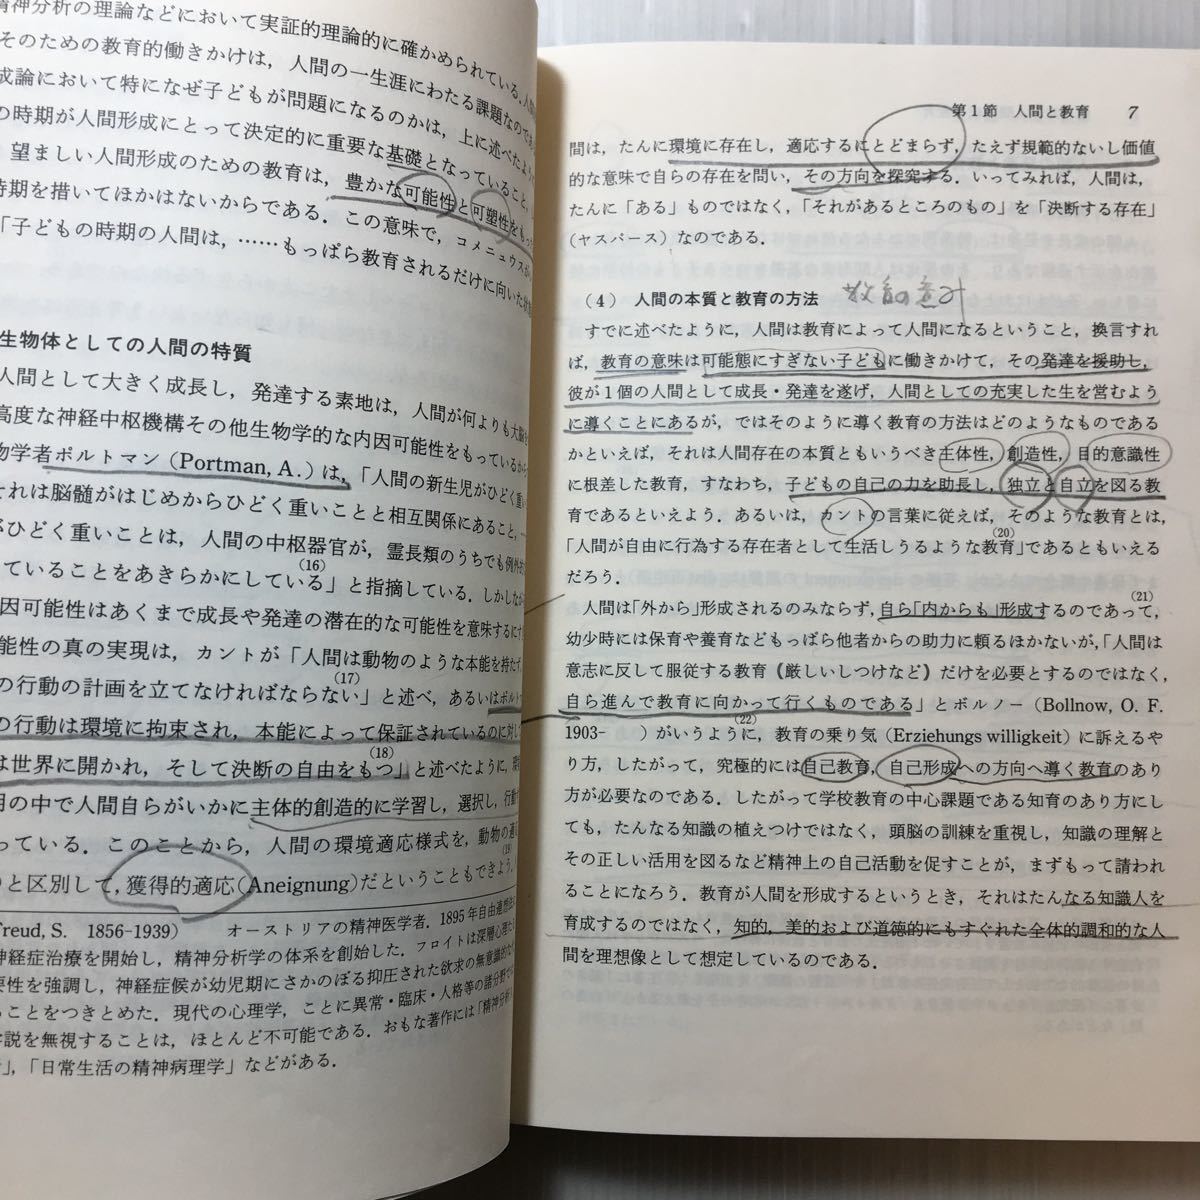 精神分析の理論などにおいて実証的理論的に確かめられている.人
そのための教育的働きかけは,人間の一生涯にわたる課題なので
成論において特になぜ子どもが問題になるのかは,上に述べたよう
の時期が人間形成にとって決定的に重要な基礎となっていること,
望ましい人間形成のための教育は,豊かな可能性と可塑性をもっ
時期を措いてほかはないからである.この意味で,コメニュウスが
「子どもの時期の人間は,……もっぱら教育されるだけに向いた状
生物体としての人間の特質
人間として大きく成長し,発達する素地は,人間が何よりも大脳を
高度な神経中枢機構その他生物学的な内因可能性をもっているから
物学者ポルトマン(Portman, A.)は,「人間の新生児がひどく重い
それは脳髄がはじめからひどく重いことと相互関係にあること,―
がひどく重いことは,人間の中枢器官が,霊長類のうちでも例外的
していることをあきらかにしている(16)」と指摘している.しかしながら
因可能性はあくまで成長や発達の潜在的な可能性を意味するにす
能性の真の実現は,カントが「人間は動物のような本能を持たず,
の行動の計画を立てなければならない(17)」と述べ,あるいはポルト
の行動は環境に拘束され,本能によって保証されているのに対して
は世界に開かれ,そして決断の自由をもつ(18)」と述べたように,
の中で人間自らがいかに主体的創造的に学習し,選択し,行動
っている.このことから,人間の環境適応様式を,動物の適
のと区別して,獲得的適応(Aneignung)だということもできよう(19).
Freud, S. 1856-1939) オーストリアの精神医学者.1895年自由連想法
神経症治療を開始し,精神分析学の体系を創始した.フロイトは深層心理
要性を強調し,神経症候が幼児期にさかのぼる抑圧された欲求の無意識的な
ることをつきとめた.現代の心理学,ことに異常・臨床・人格等の諸分野では
学説を無視することは,ほとんど不可能である.おもな著作には「精神分析
」,「日常生活の精神病理学」などがある.
第1節 人間と教育 7
間は,たんに環境に存在し,適応するにとどまらず,たえず規範的ないし価値
的な意味で自らの存在を問い,その方向を探究する.いってみれば,人間は,
たんに「ある」ものではなく,「それがあるところのもの」を「決断する存在」
(ヤスパース)なのである.
(4) 人間の本質と教育の方法 教育の意味
すでに述べたように,人間は教育によって人間になるということ,換言すれ
ば,教育の意味は可能態にすぎない子どもに働きかけて,その発達を援助し,
彼が1個の人間として成長・発達を遂げ,人間としての充実した生を営むよう
に導くことにあるが,ではそのように導く教育の方法はどのようなものである
かといえば,それは人間存在の本質ともいうべき主体性,創造性,目的意識性
に根差した教育,すなわち,子どもの自己の力を助長し,独立と自立を図る教
育であるといえよう.あるいは,カントの言葉に従えば,そのような教育とは,
「人間が自由に行為する存在者として生活しうるような教育(20)」であるともいえる
だろう.
人間は「外から」形成されるのみならず,自ら「内からも」形成するのであって(21),
幼少時には保育や養育などもっぱら他者からの助力に頼るほかないが,「人間は
意志に反して服従する教育(厳しいしつけなど)だけを必要とするのではなく,
自ら進んで教育に向かって行くものである」とボルノー(Bollnow, O. F.
1903- )がいうように(22),教育の乗り気(Erziehungs willigkeit)に訴えるや
り方,したがって,究極的には自己教育,自己形成への方向へ導く教育のあり
方が必要なのである.したがって学校教育の中心課題である知育のあり方にし
ても,たんなる知識の植えつけではなく,頭脳の訓練を重視し,知識の理解と
その正しい活用を図るなど精神上の自己活動を促すことが,まずもって請われ
ることになろう.教育が人間を形成するというとき,それはたんなる知識人を
育成するのではなく,知的,美的および道徳的にもすぐれた全体的調和的な人
間を理想像として想定しているのである.